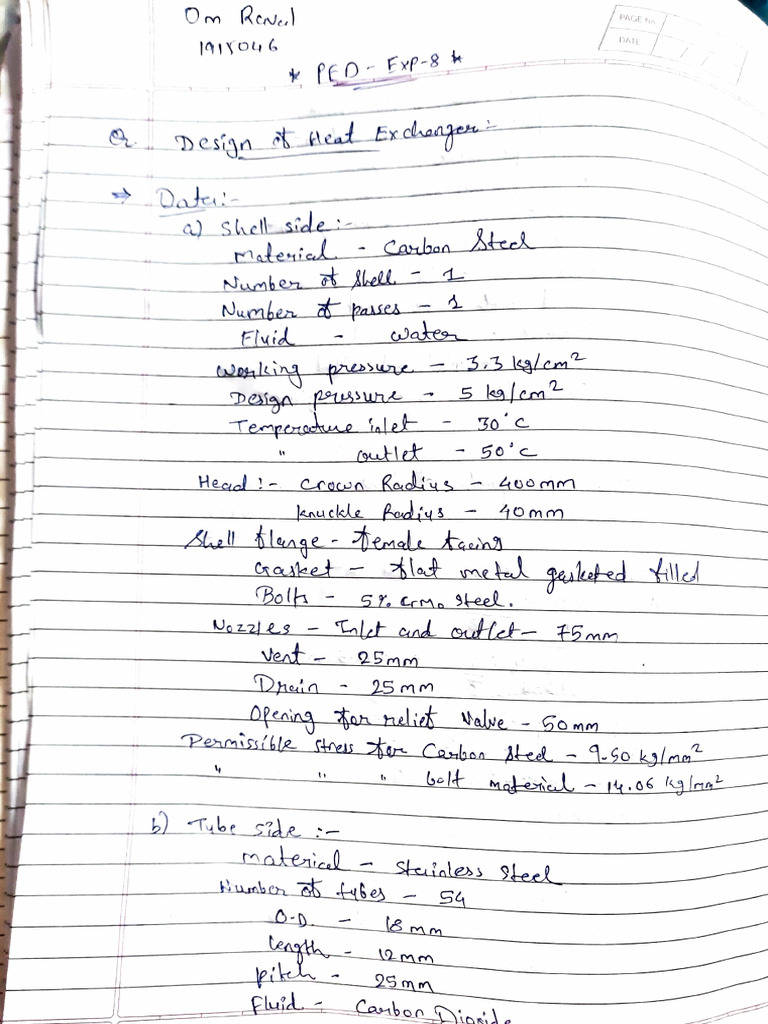 Om Raval
1915046
PAGE No.
DATE
* PED - Exp-8 *
Q. Design of Heat Exchanger:-
⇒ Data:-
a) Shell side:-
Material - Carbon Steel
Number of shell - 1
Number of passes - 1
Fluid - water
Working pressure - 3.3 kg/cm²
Design pressure - 5 kg/cm²
Temperature inlet - 30°C
" outlet - 50°C
Head:- Crown Radius - 400mm
Knuckle Radius - 40mm
Shell flange - female facing
Gasket - flat metal gasketed filled
Bolts - 5% CrMo Steel.
Nozzles - Inlet and outlet - 75mm
Vent - 25mm
Drain - 25mm
Opening for relief valve - 50mm
Permissible stress for Carbon Steel - 9.50 kg/mm²
" " " bolt material - 14.06 kg/mm²
b) Tube side:-
Material - Stainless Steel
Number of tubes - 54
O.D. - 18mm
length - 12mm
Pitch - 25mm
Fluid - Carbon Dioxide